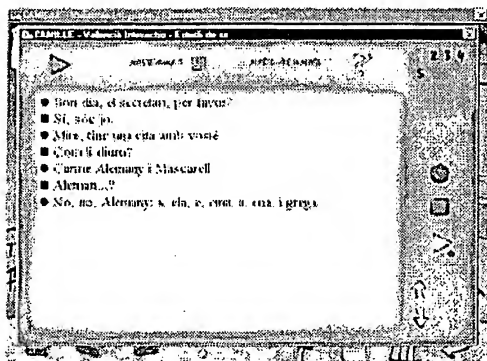 CAMILLE - Valencià Interactiu - Estudi de
2 3 4
5
● Bon dia, el secretari, per favor?
■ Sí, sóc jo.
● Mire, tinc una cita amb vostè
■ Com li diuen?
● Carme Alemany i Mascarell
■ Aleman...?
● No, no, Alemany: a, ela, e, ema, a, ena, i grega